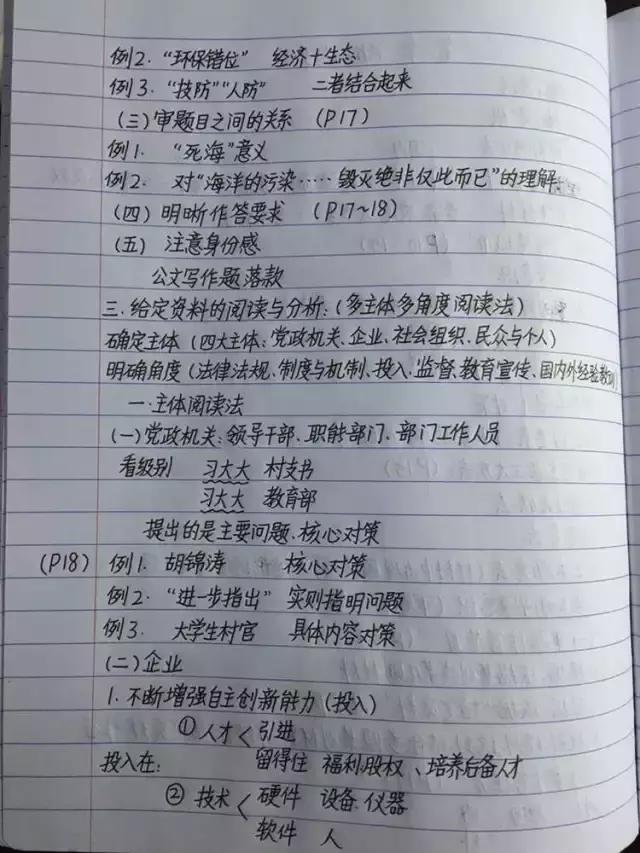 例2. “环保错位” 经济+生态
例3. “技防”“人防” 二者结合起来
(三)审题目之间的关系 (P17)
例1. “死海”意义
例2. 对“海洋的污染……毁灭绝非仅此而已”的理解.
(四)明晰作答要求 (P17~18)
(五) 注意身份感
公文写作题落款
三.给定资料的阅读与分析:(多主体多角度阅读法)
确定主体(四大主体:党政机关、企业、社会组织、民众与个人)
明确角度(法律法规、制度与机制、投入、监督、教育宣传、国内外经验教训
一.主体阅读法
(一)党政机关:领导干部、职能部门、部门工作人员
看级别 习大大 村支书
习大大 教育部
提出的是主要问题、核心对策
(P18) 例1. 胡锦涛 核心对策
例2. “进一步指出” 实则指明问题
例3. 大学生村官 具体内容对策
(二)企业
1.不断增强自主创新能力(投入)
①人才< 引进
投入在: 留得住 福利、股权、培养后备人才
②技术< 硬件 设备、仪器
软件 人